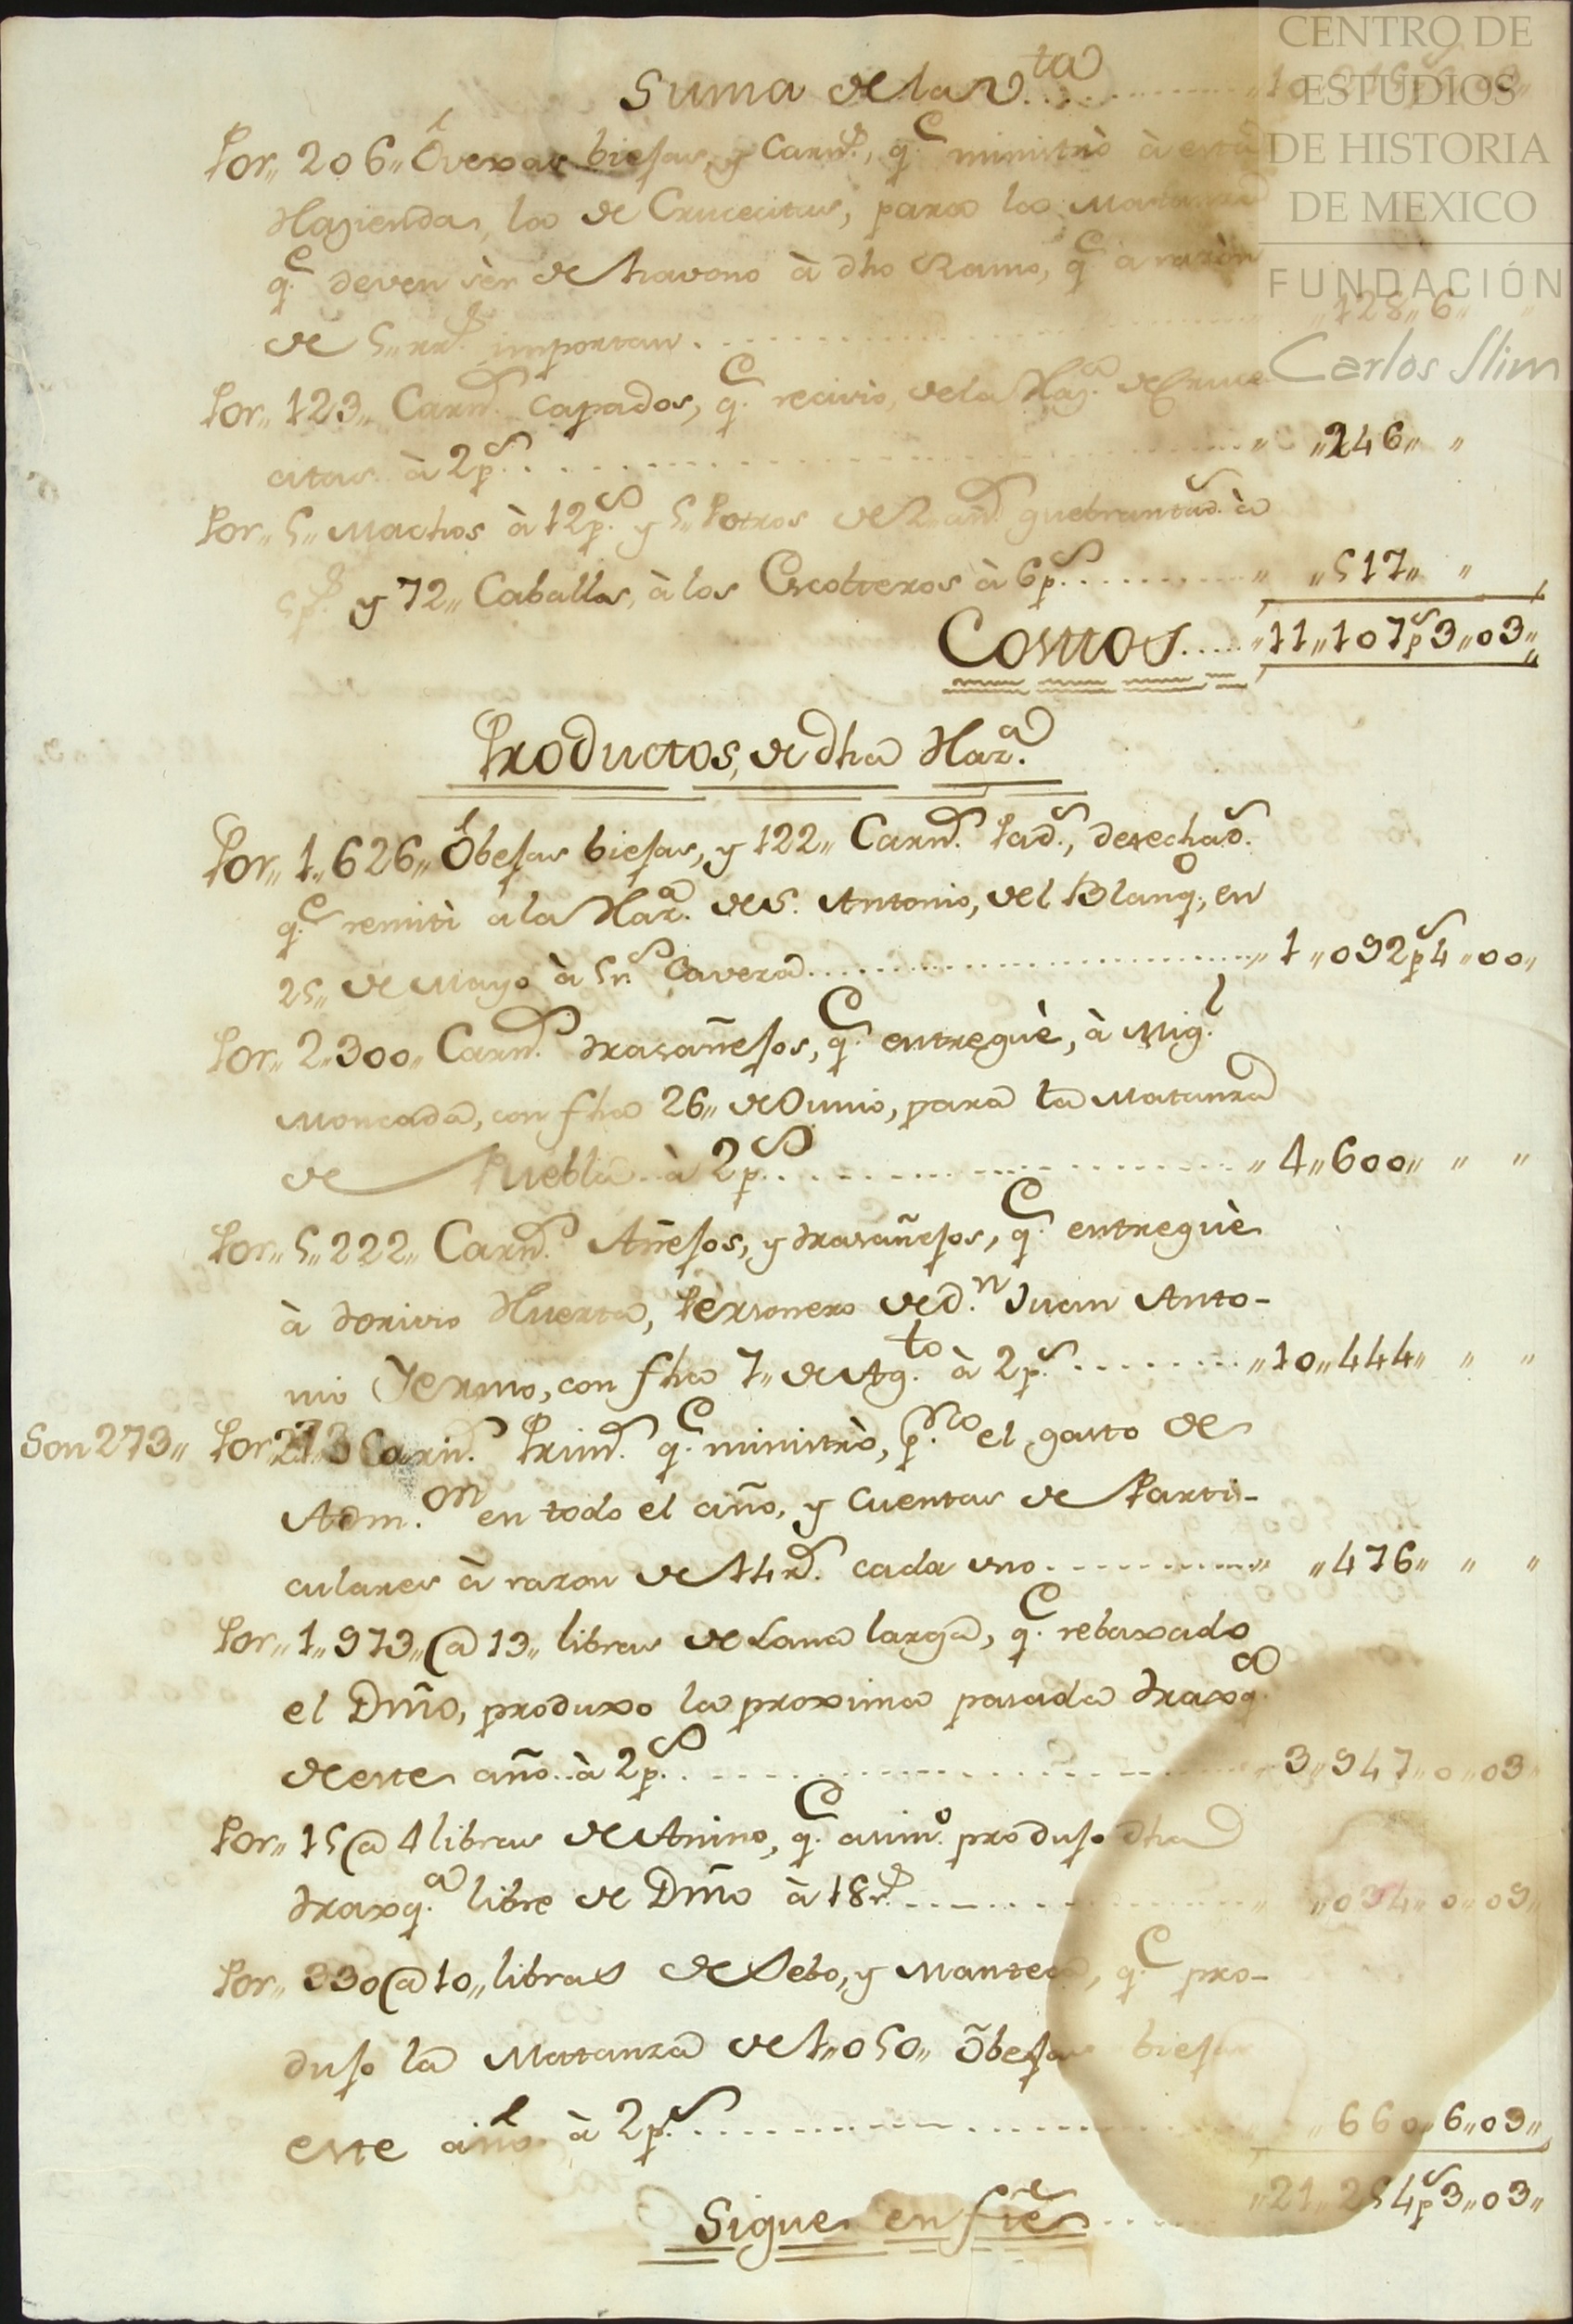 CENTRO DE
ESTUDIOS
DE HISTORIA
DE MEXICO
FUNDACIÓN
Carlos Slim
Suma de la v.ta
Por,, 206,, Ovexas biejas, y Carn.s, q.e ministrò à esta
Hazienda, la de Crucecitas, para la Matanza
q.e deven sèr de havono à dho Ramo, q.e a razòn
de 5,, rr.s importan. ,,128,,6,,
Por,, 123,, Carn.s Capados, q.e recivió, de la Haz.a de Cruce
citas à 2p.s ,,246,, ,,
Por,, 5,, Machos à 12p.s y 5,, Potros de 2. an.s quebrantad.s à
5p.s y 72,, Caballos, à los Escolteros à 6p.s ,,517,, ,,
Costos ,,11,,107p.s3,,03,,
Productos, de dha Haz.a
Por,, 1,,626,, Obejas biejas, y 122,, Carn.s Pad.s, desechad.s
q.e remitì a la Haz.a de S. Antonio, del Blanq.o, en
25,, de Mayo à 5r.s Caveza ,,1,,092p.s4,,00,,
Por,, 2,,300,, Carn.s trasañejos, q.e entreguè, à Mig.l
Moncada, con fha 26,, de Junio, para la Matanza
de Puebla à 2p.s ,,4,,600,, ,, ,,
Por,, 5,,222,, Carn.s Añejos, y trasañejos, q.e entreguè
à Torivio Huerta, Personero de d.n Juan Anto-
nio Yermo, con fha 7,, de Ag.to à 2p.s ,,10,,444,, ,, ,,
Son 273,, Por 273 Carn.s Prim.s q.e ministrò, p.a el gasto de
Adm.on en todo el año, y Cuentas de Parti-
culares à razon de 14 r.s cada uno ,,476,, ,, ,,
Por,, 1,,973,,@ 13,, libras de Lana larga, q.e rebaxado
el Dmõ, produxo la proxima pasada traxq.a
de este año à 2p.s 3,,947,,0,,03,,
Por,, 15@ 4 libras de Anino, q.e asim.o produjo dha
traxq.a libre de Dmõ à 18r.s ,,034,,0,,09,,
Por,, 330@10,, libras de Sebo, y Manteca, q.e pro-
dujo la Matanza de 1,,050,, Obejas biejas
este año à 2p.s ,,660,,6,,03,,
Sigue en fte ,,21,,254p.s3,,03,,